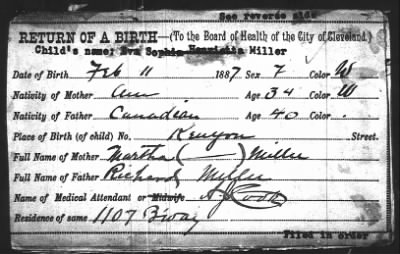 See reverse side
RETURN OF A BIRTH—(To the Board of Health of the City of Cleveland)
Child's name: Eva Sophia Henrietta Miller
Date of Birth Feb 11 1887. Sex F Color W
Nativity of Mother Am Age 34 Color W
Nativity of Father Canadian Age 40 Color .
Place of Birth (of child) No. Kenyon Street.
Full Name of Mother Martha ( — ) Miller
Full Name of Father Richard Miller
Name of Medical Attendant or Midwife Cook
Residence of same 1107 Bway
Filed in order